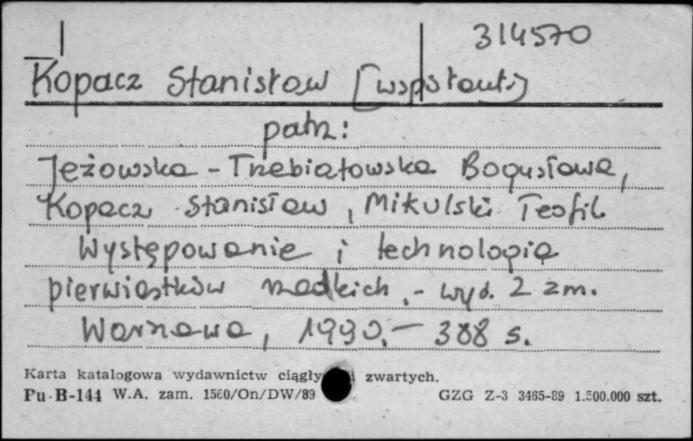 314570
Kopacz Stanisław [współaut.]
patrz:
Jeżowska-Trzebiatowska Bogusława,
Kopacz Stanisław, Mikulski Teofil
Występowanie i technologia
pierwiastków rzadkich.- wyd. 2 zm.
Warszawa, 1990.- 388 s.
Karta katalogowa wydawnictw zwartych.
Pu-B-144 W.A. zam. 1560/On/DW/89 GZG Z-3 3465-89 1.500.000 szt.